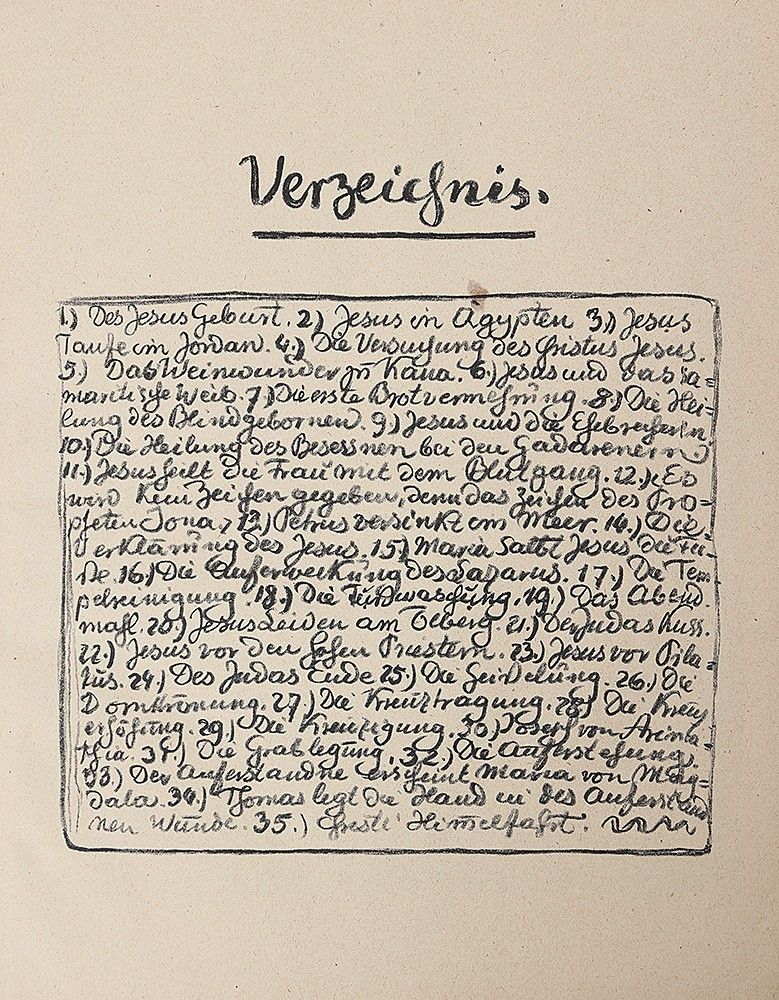 Verzeichnis.
1.) Des Jesus Geburt. 2.) Jesus in Ägypten 3.) Jesus
Taufe im Jordan. 4.) Die Versuchung des Christus Jesus.
5.) Das Weinwunder zu Kana. 6.) Jesus und das sa=
maritische Weib. 7.) Die erste Brotvermehrung. 8.) Die Hei=
lung des Blindgebornen. 9.) Jesus und die Ehebrecherin
10.) Die Heilung des Besessnen bei den Gadarenern
11.) Jesus heilt die Frau mit dem Blutgang. 12.) „Es
wird kein Zeichen gegeben, denn das Zeichen des Pro=
pheten Jona." 13.) Petrus versinkt im Meer. 14.) Die
Verklärung des Jesus. 15.) Maria salbt Jesus die Fü-
ße. 16.) Die Auferweckung des Lazarus. 17.) Die Tem
pelreinigung. 18.) Die Fußwaschung. 19.) Das Abend
mahl. 20.) Jesus Leiden am Ölberg. 21.) Der Judas kuss.
22.) Jesus vor den hohen Priestern. 23.) Jesus vor Pila=
tus. 24.) Des Judas Ende 25.) Die Geißelung. 26.) Die
Dornkrönung. 27.) Die Kreuztragung. 28.) Die Kreuz
erhöhung. 29.) Die Kreuzigung. 30.) Joseph von Arima=
thia. 31.) Die Grablegung. 32.) Die Auferstehung.
33.) Der Auferstandne erscheint Maria von Mag=
dala. 34.) Thomas legt die Hand in des Auferstand
nen Wunde. 35.) Christi Himmelfahrt.